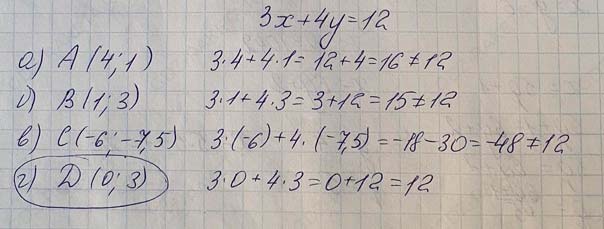 3x+4y=12
а) A (4; 1) 3·4+4·1= 12+4=16≠12
б) B (1; 3) 3·1+4·3=3+12=15≠12
в) C(-6; -7,5) 3·(-6)+4·(-7,5)=-18-30=-48≠12
г) D (0; 3) 3·0+4·3=0+12=12